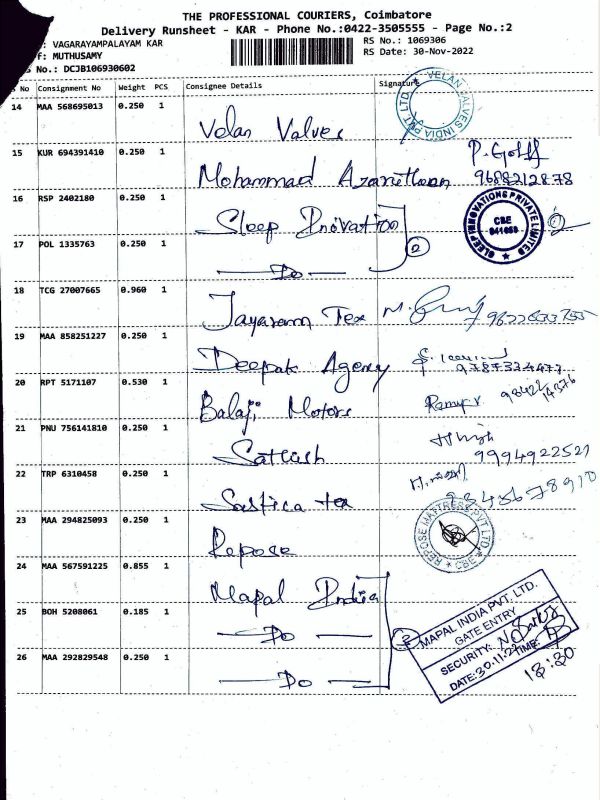 THE PROFESSIONAL COURIERS, Coimbatore
Delivery Runsheet - KAR - Phone No.:0422-3505555 - Page No.:2
: VAGARAYAMPALAYAM KAR
RS No.: 1069306
f: MUTHUSAMY
RS Date: 30-Nov-2022
No.: DCJB106930602
No Consignment No Weight PCS Consignee Details Signature
14 MAA 568695013 0.250 1 Velan Valves
VELAN VALVES INDIA PVT LTD.
15 KUR 694391410 0.250 1 Mohammad 9688212878
16 RSP 2402180 0.250 1 Sleep Inovation
SLEEP INNOVATIONS PRIVATE LIMITED
CBE
641659
17 POL 1335763 0.250 1 Do 2
18 TCG 27007665 0.960 1 Jayaram Tex
19 MAA 858251227 0.250 1 Deepak Agency 9787334477
20 RPT 5171107 0.530 1 Balaji Motors 98422 14376
21 PNU 756141810 0.250 1 Sathish 9994922521
22 TRP 6310458 0.250 1 Sastica tex 9345678910
23 MAA 294825093 0.250 1 Repose
REPOSE MATTRESS PVT LTD. CBE
24 MAA 567591225 0.855 1 Mapal India
25 BOH 5208061 0.185 1 Do 3
26 MAA 292829548 0.250 1 Do
MAPAL INDIA PVT. LTD.
GATE ENTRY
SECURITY:
DATE: 30.11.22 TIME:
13:30